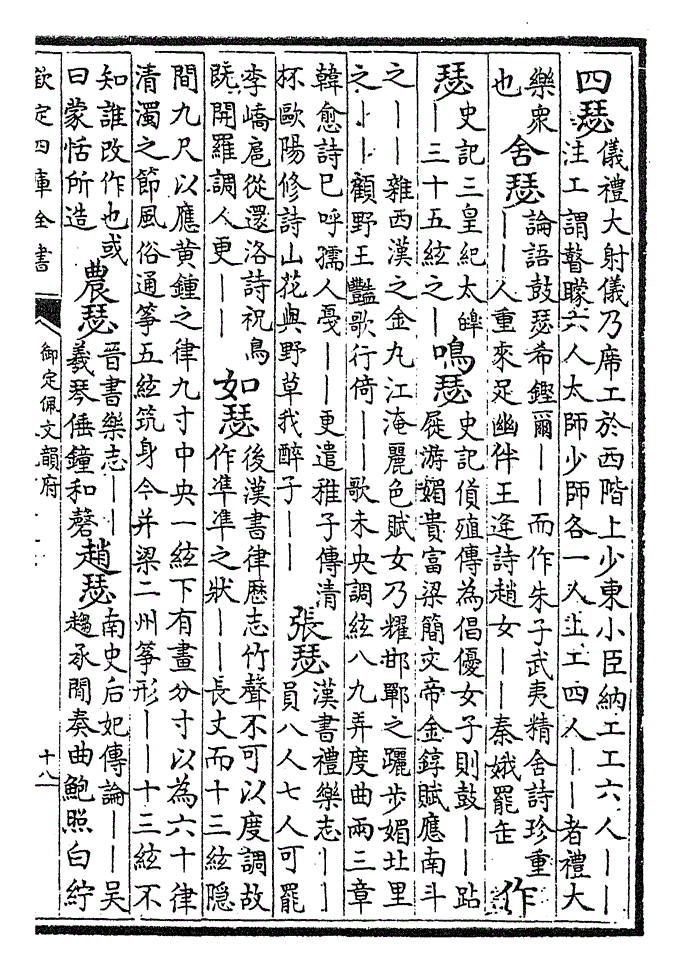 四瑟
儀禮大射儀乃席工於西階上少東小臣納工工六人丨丨
注工謂瞽矇六人太師少師各一人上工四人丨丨者禮大
樂衆
也
舍瑟
論語鼓瑟希鏗爾丨丨而作朱子武夷精舍詩珍重
丨丨人重來足幽伴王逄詩趙女丨丨秦娥罷缶
作
瑟
史記三皇紀太皥
丨三十五絃之丨
鳴瑟
史記貨殖傳為倡優女子則鼓丨丨跕
屣游媚貴富梁簡文帝金錞賦應南斗
之丨丨雜西漢之金丸江淹麗色賦女乃耀邯鄲之躧步媚北里
之丨丨顧野王豔歌行倚丨丨歌未央調絃八九弄度曲兩三章
韓愈詩已呼孺人戞丨丨更遣稚子傳清
杯歐陽修詩山花與野草我醉子丨丨
張瑟
漢書禮樂志丨丨
員八人七人可罷
李嶠扈從還洛詩祝鳥
既開羅調人更丨丨
如瑟
後漢書律歷志竹聲不可以度調故
作凖凖之狀丨丨長丈而十三絃隱
間九尺以應黄鍾之律九寸中央一絃下有畫分寸以為六十律
清濁之節風俗通箏五絃筑身今并梁二州箏形丨丨十三絃不
知誰改作也或
曰蒙恬所造
農瑟
晉書樂志丨丨
羲琴倕鐘和磬
趙瑟
南史后妃傳論丨丨吳
趨承間奏曲鮑照白紵
欽定四庫全書
御定佩文韻府
十八